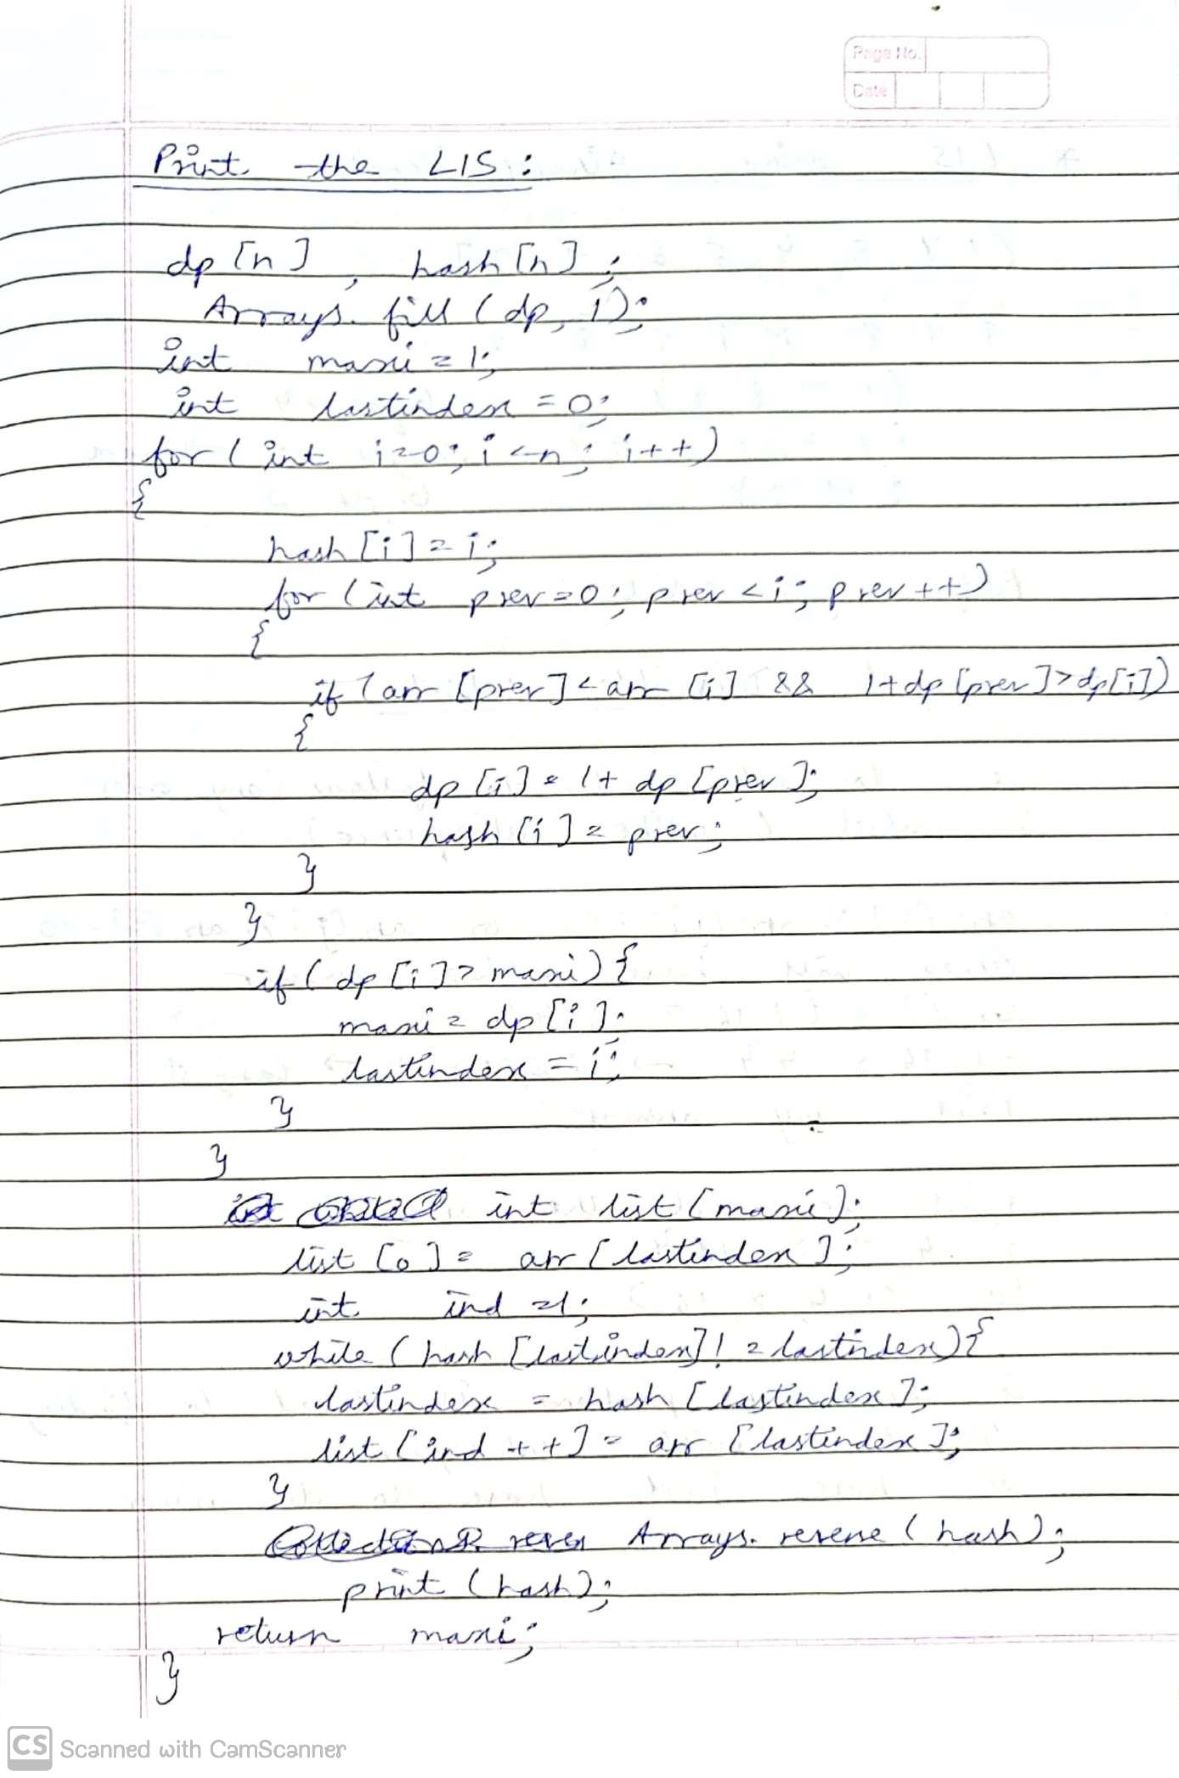 Page No.
Date
Print the LIS :
dp [n] , hash [n] ;
Arrays. fill ( dp, 1);
int maxi = 1;
int lastindex = 0;
for ( int i=0; i<n; i++)
{
hash [i] = i;
for (int prev=0; prev <i; prev ++)
{
if (arr [prev] < arr [i] && 1+dp [prev] > dp[i])
{
dp [i] = 1+ dp [prev ];
hash [i] = prev;
}
}
if ( dp [i] > maxi) {
maxi = dp [i];
lastindex = i;
}
}
int list [maxi];
list [0] = arr [lastindex ];
int ind =1;
while ( hash [lastindex] != lastindex) {
lastindex = hash [lastindex ];
list [ind ++] = arr [lastindex ];
}
Arrays. reverse ( hash);
print (hash);
return maxi;
}
CS Scanned with CamScanner